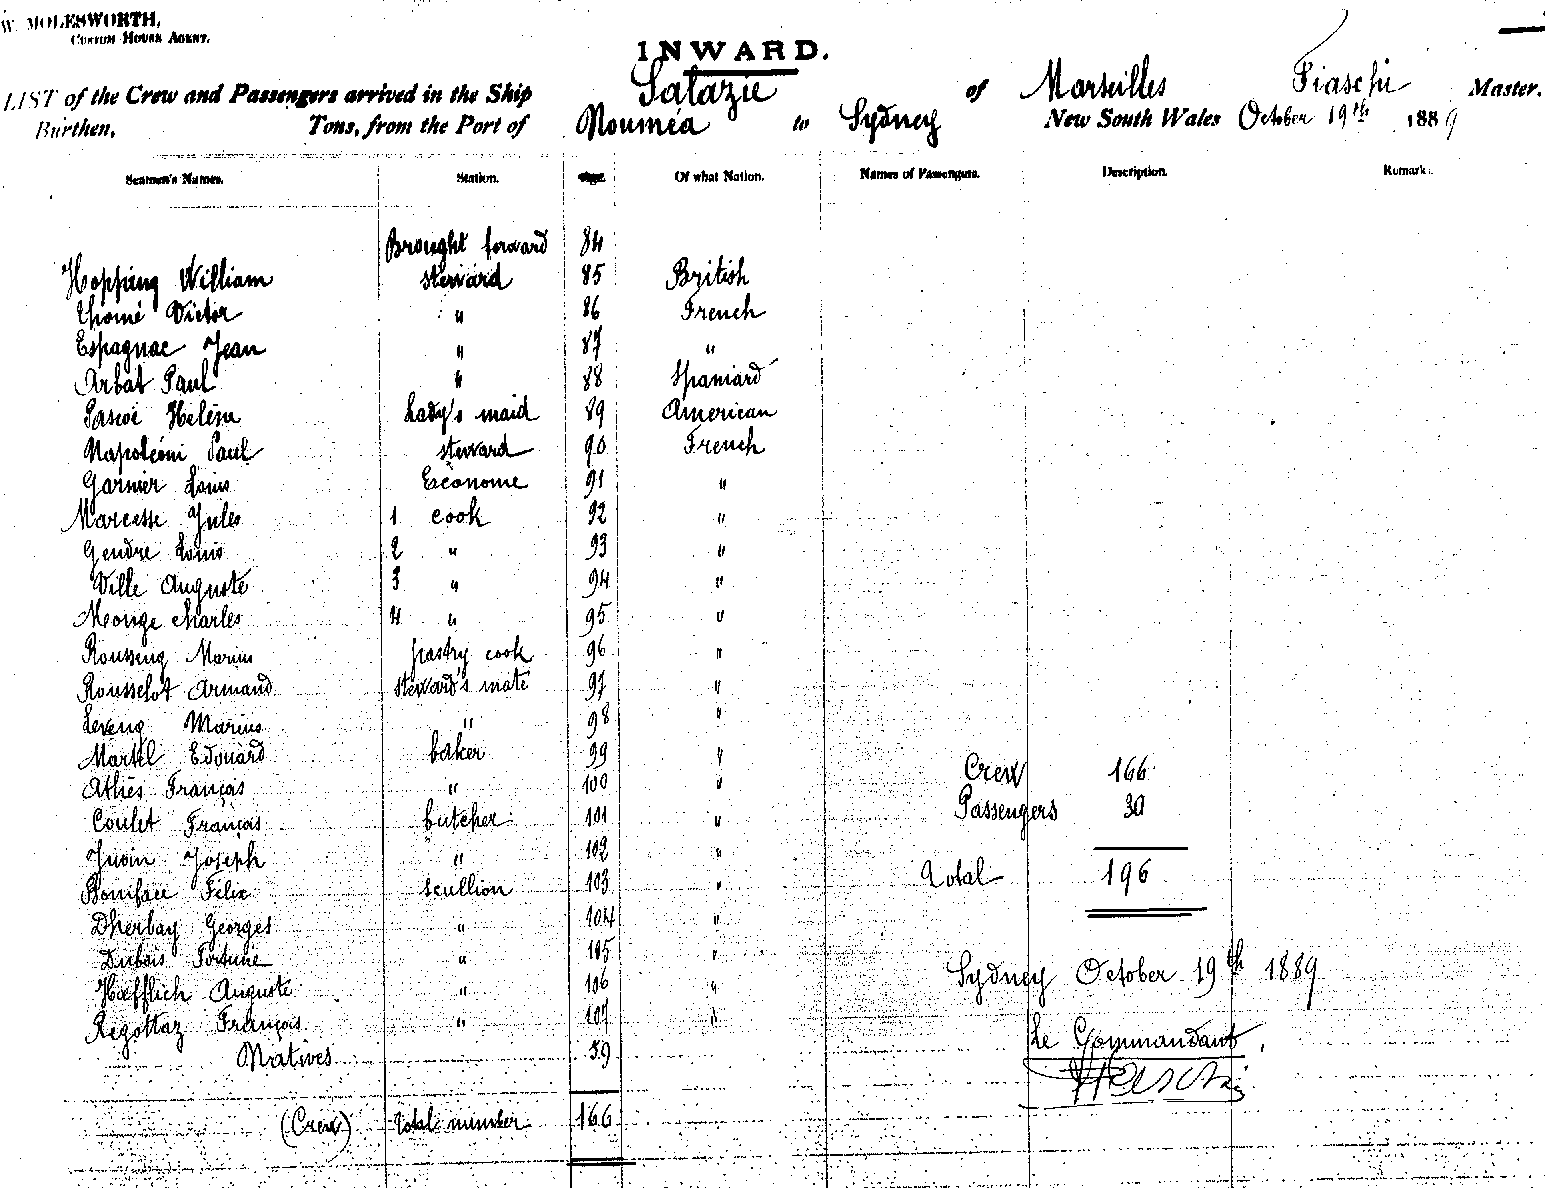 W. MOLESWORTH,
CUSTOM HOUSE AGENT.
INWARD.
LIST of the Crew and Passengers arrived in the Ship Salazie of Marseilles Fiaschi Master.
Burthen, Tons, from the Port of Nouméa to Sydney New South Wales October 19th 1889
Seamen's Names. Station. Age. Of what Nation. Names of Passengers. Description. Remarks.
Brought forward 84
Hopping William steward 85 British
Thomé Victor " 86 French
Espagnac Jean " 87 "
Arbat Paul " 88 Spaniard
Pascoe Hélène Lady's maid 89 American
Napoléoni Paul steward 90 French
Garnier Louis Econome 91 "
Marcesse Jules 1 cook 92 "
Gendre Louis 2 " 93 "
Ville Auguste 3 " 94 "
Monge Charles 4 " 95 "
Rousseng Marius pastry cook 96 "
Rousselot Armand steward's mate 97 "
Marius " 98 "
Martel Edouard baker 99 "
Athès François " 100 "
Coulet François butcher 101 "
Juoin Joseph " 102 "
Boniface Félix scullion 103 "
Dherbay Georges " 104 "
Dubois Fortuné " 105 "
Hoefflich Auguste " 106 "
Regottaz François " 107 "
Natives 59
(Crew) Total number 166
Crew 166
Passengers 30
Total 196
Sydney October 19th 1889
Le Commandant,
Fiaschi